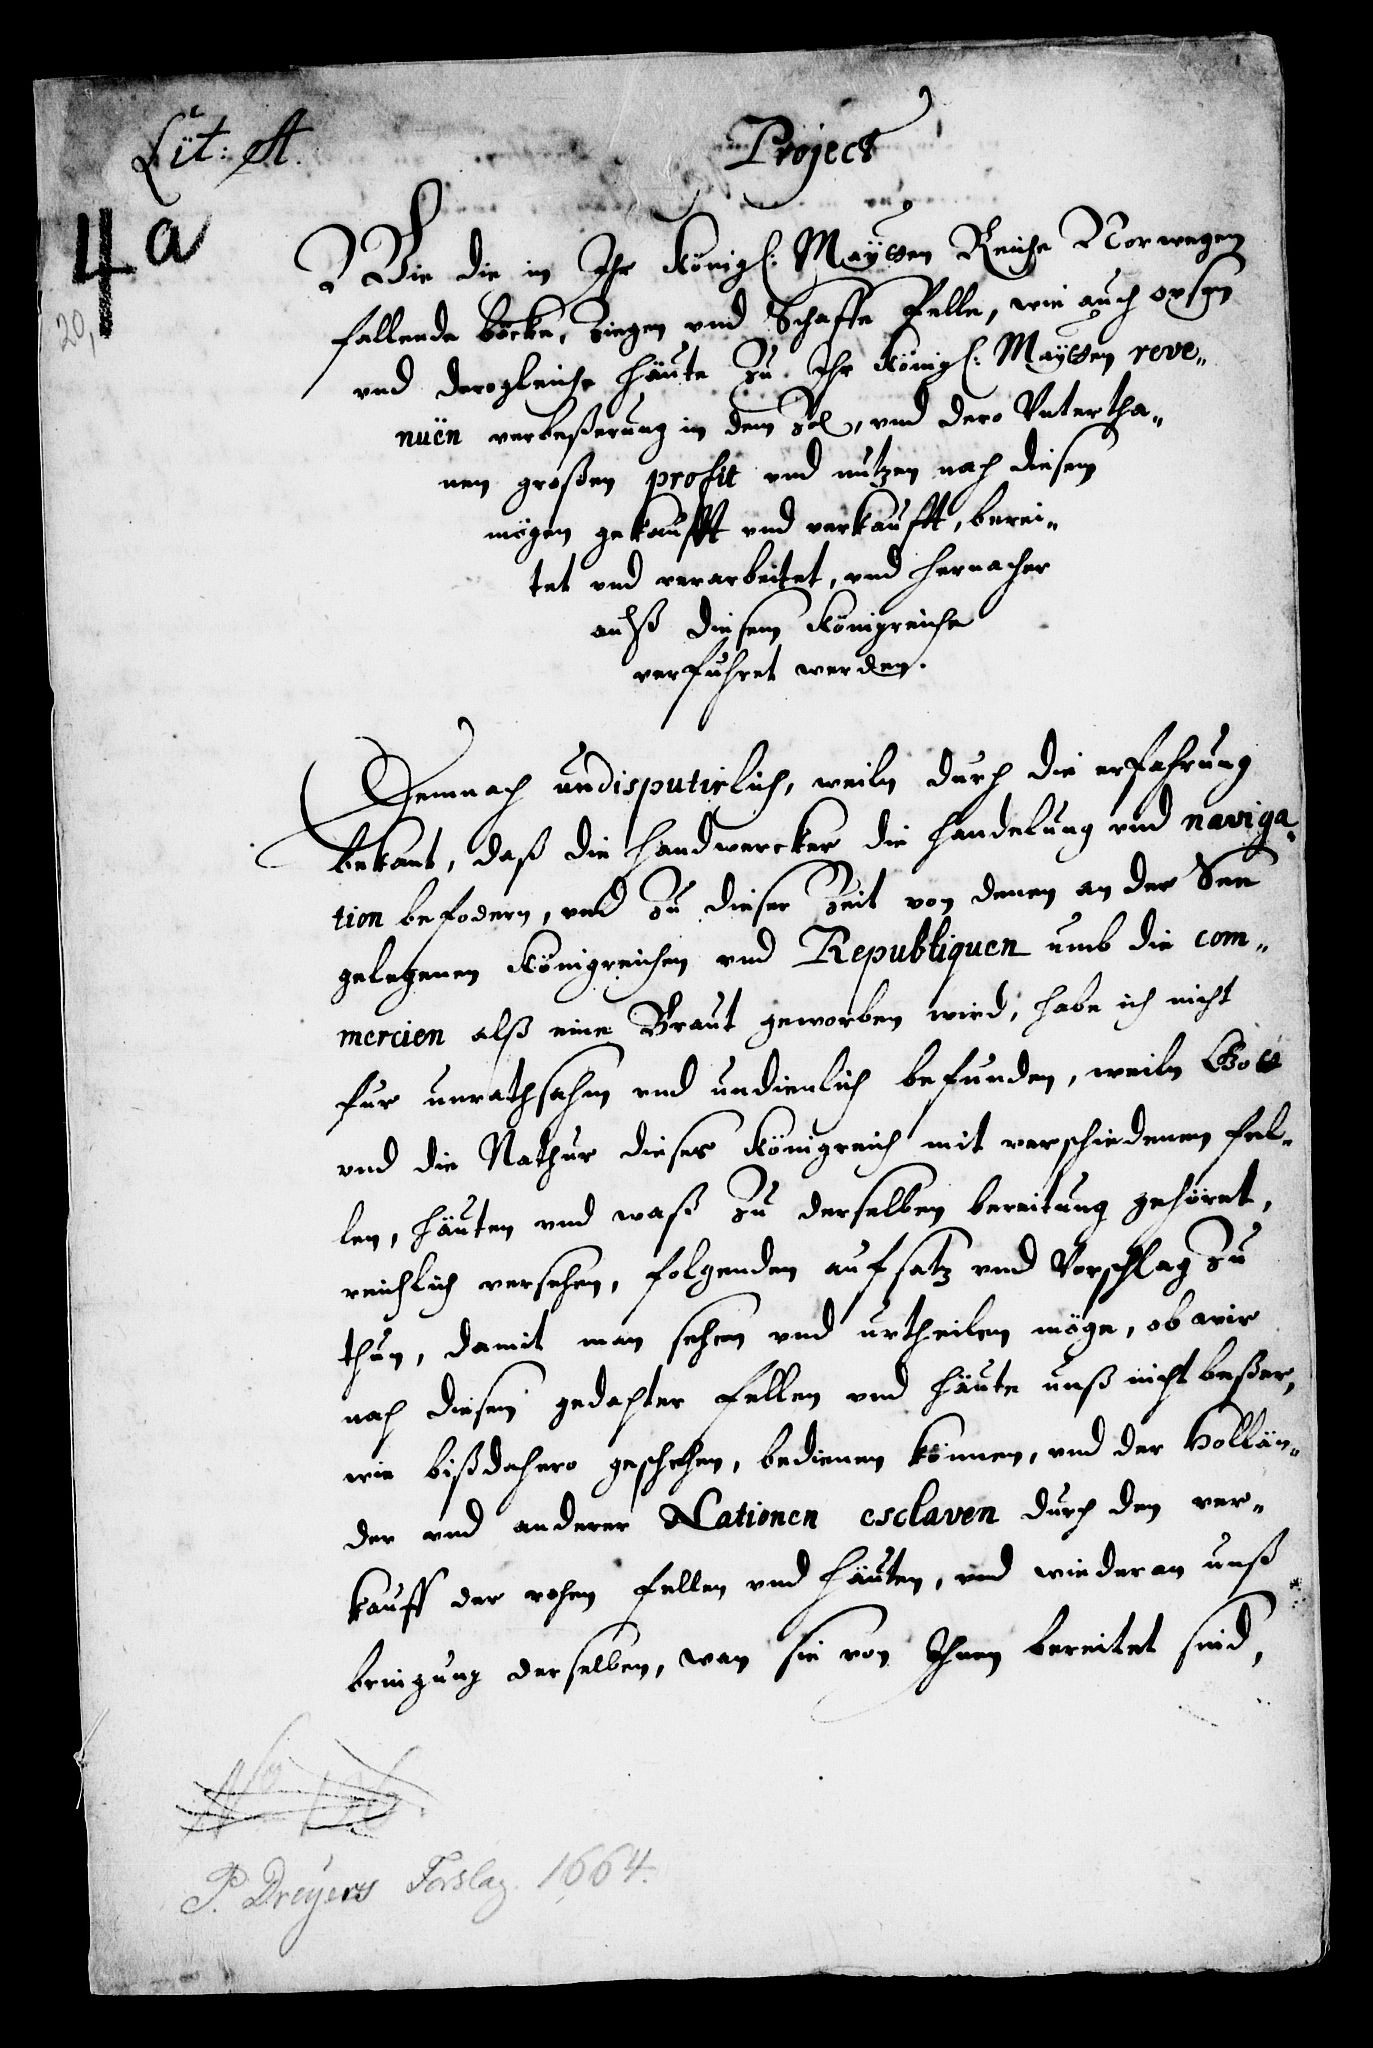 Lit: A.
Project
4 a
20,
Wie die in Ihr Königl: Maytten Reiche Norwegen
fallende böcke, Ziegen und Schaffe Felle, wie auch oxsen
und derogleiche häute zu Ihr Königl: Maytten reve-
nuën verbeßerung in dem Zol, und dero Untertha-
nen großen profit und nutzen nach diesem
mögen gekaufft und verkaufft, berei-
tet und verarbeitet, und hernacher
auß diesem Königreiche
verfuhret werden.
Demnach undisputirlich, weiln durch die erfahrung
bekant, daß die handwercker die handelung und naviga-
tion befodern, und zu dieser Zeit von denen an der See
gelegenen Königreichen und Republiquen umb die com-
mercien alß eine Braut geworben wird, habe ich nicht
fur unrathsahm und undienlich befunden, weiln Gott
und die Nathur dieses Königreich mit verschiedenen fel-
len, häuten und waß zu derselben bereitung gehöret,
reichlich versehen, folgenden aufsatz und Vorschlag zu
thun, damit man sehen und urtheilen möge, ob wir
nach diesem gedachter fellen und häute unß nicht beßer,
wie bißdahero geschehen, bedienen können, und der Hollän-
der und anderer Nationen esclaven durch den ver-
kauff der rohen fellen und häuten, und wiederan unß
bringung derselben, wan sie von Ihnen bereitet sind,
P. Dreyers Forslag. 1664.